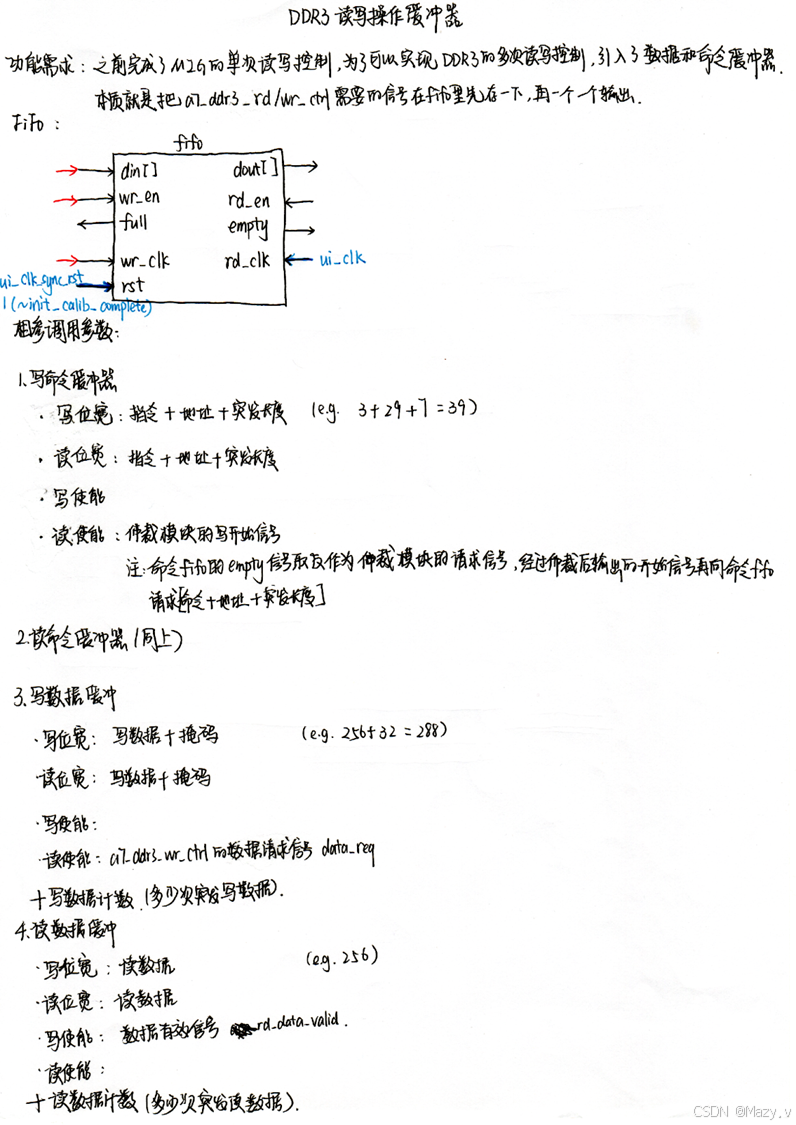 DDR3读写操作缓冲器
功能需求：之前完成了MIG的单次读写控制，为了可以实现DDR3的多次读写控制，引入了数据和命令缓冲器.
本质就是把a7_ddr3_rd/wr_ctrl需要的信号在fifo里先存一下，再一个一个输出.
FiFo：
fifo
din[] dout[]
wr_en rd_en
full empty
wr_clk rd_clk ui_clk
ui_clk_sync_rst rst
|(~init_calib_complete)
相参调用参数：
1.写命令缓冲器
· 写位宽：指令+地址+突发长度 (e.g. 3+29+7=39)
· 读位宽：指令+地址+突发长度
· 写使能
· 读使能：仲裁模块的写开始信号
注：命令fifo的empty信号取反作为仲裁模块的请求信号，经过仲裁后输出的开始信号再向命令fifo
请求[命令+地址+突发长度]
2.读命令缓冲器(同上)
3.写数据缓冲
·写位宽：写数据+掩码 (e.g. 256+32=288)
·读位宽：写数据+掩码
·写使能：
·读使能：a7_ddr3_wr_ctrl的数据请求信号 data_req
+写数据计数.(多少次突发写数据).
4.读数据缓冲
·写位宽：读数据 (e.g. 256)
·读位宽：读数据
·写使能：数据有效信号 rd_data_valid.
·读使能：
+读数据计数(多少次突发读数据).
CSDN @Mazy.v